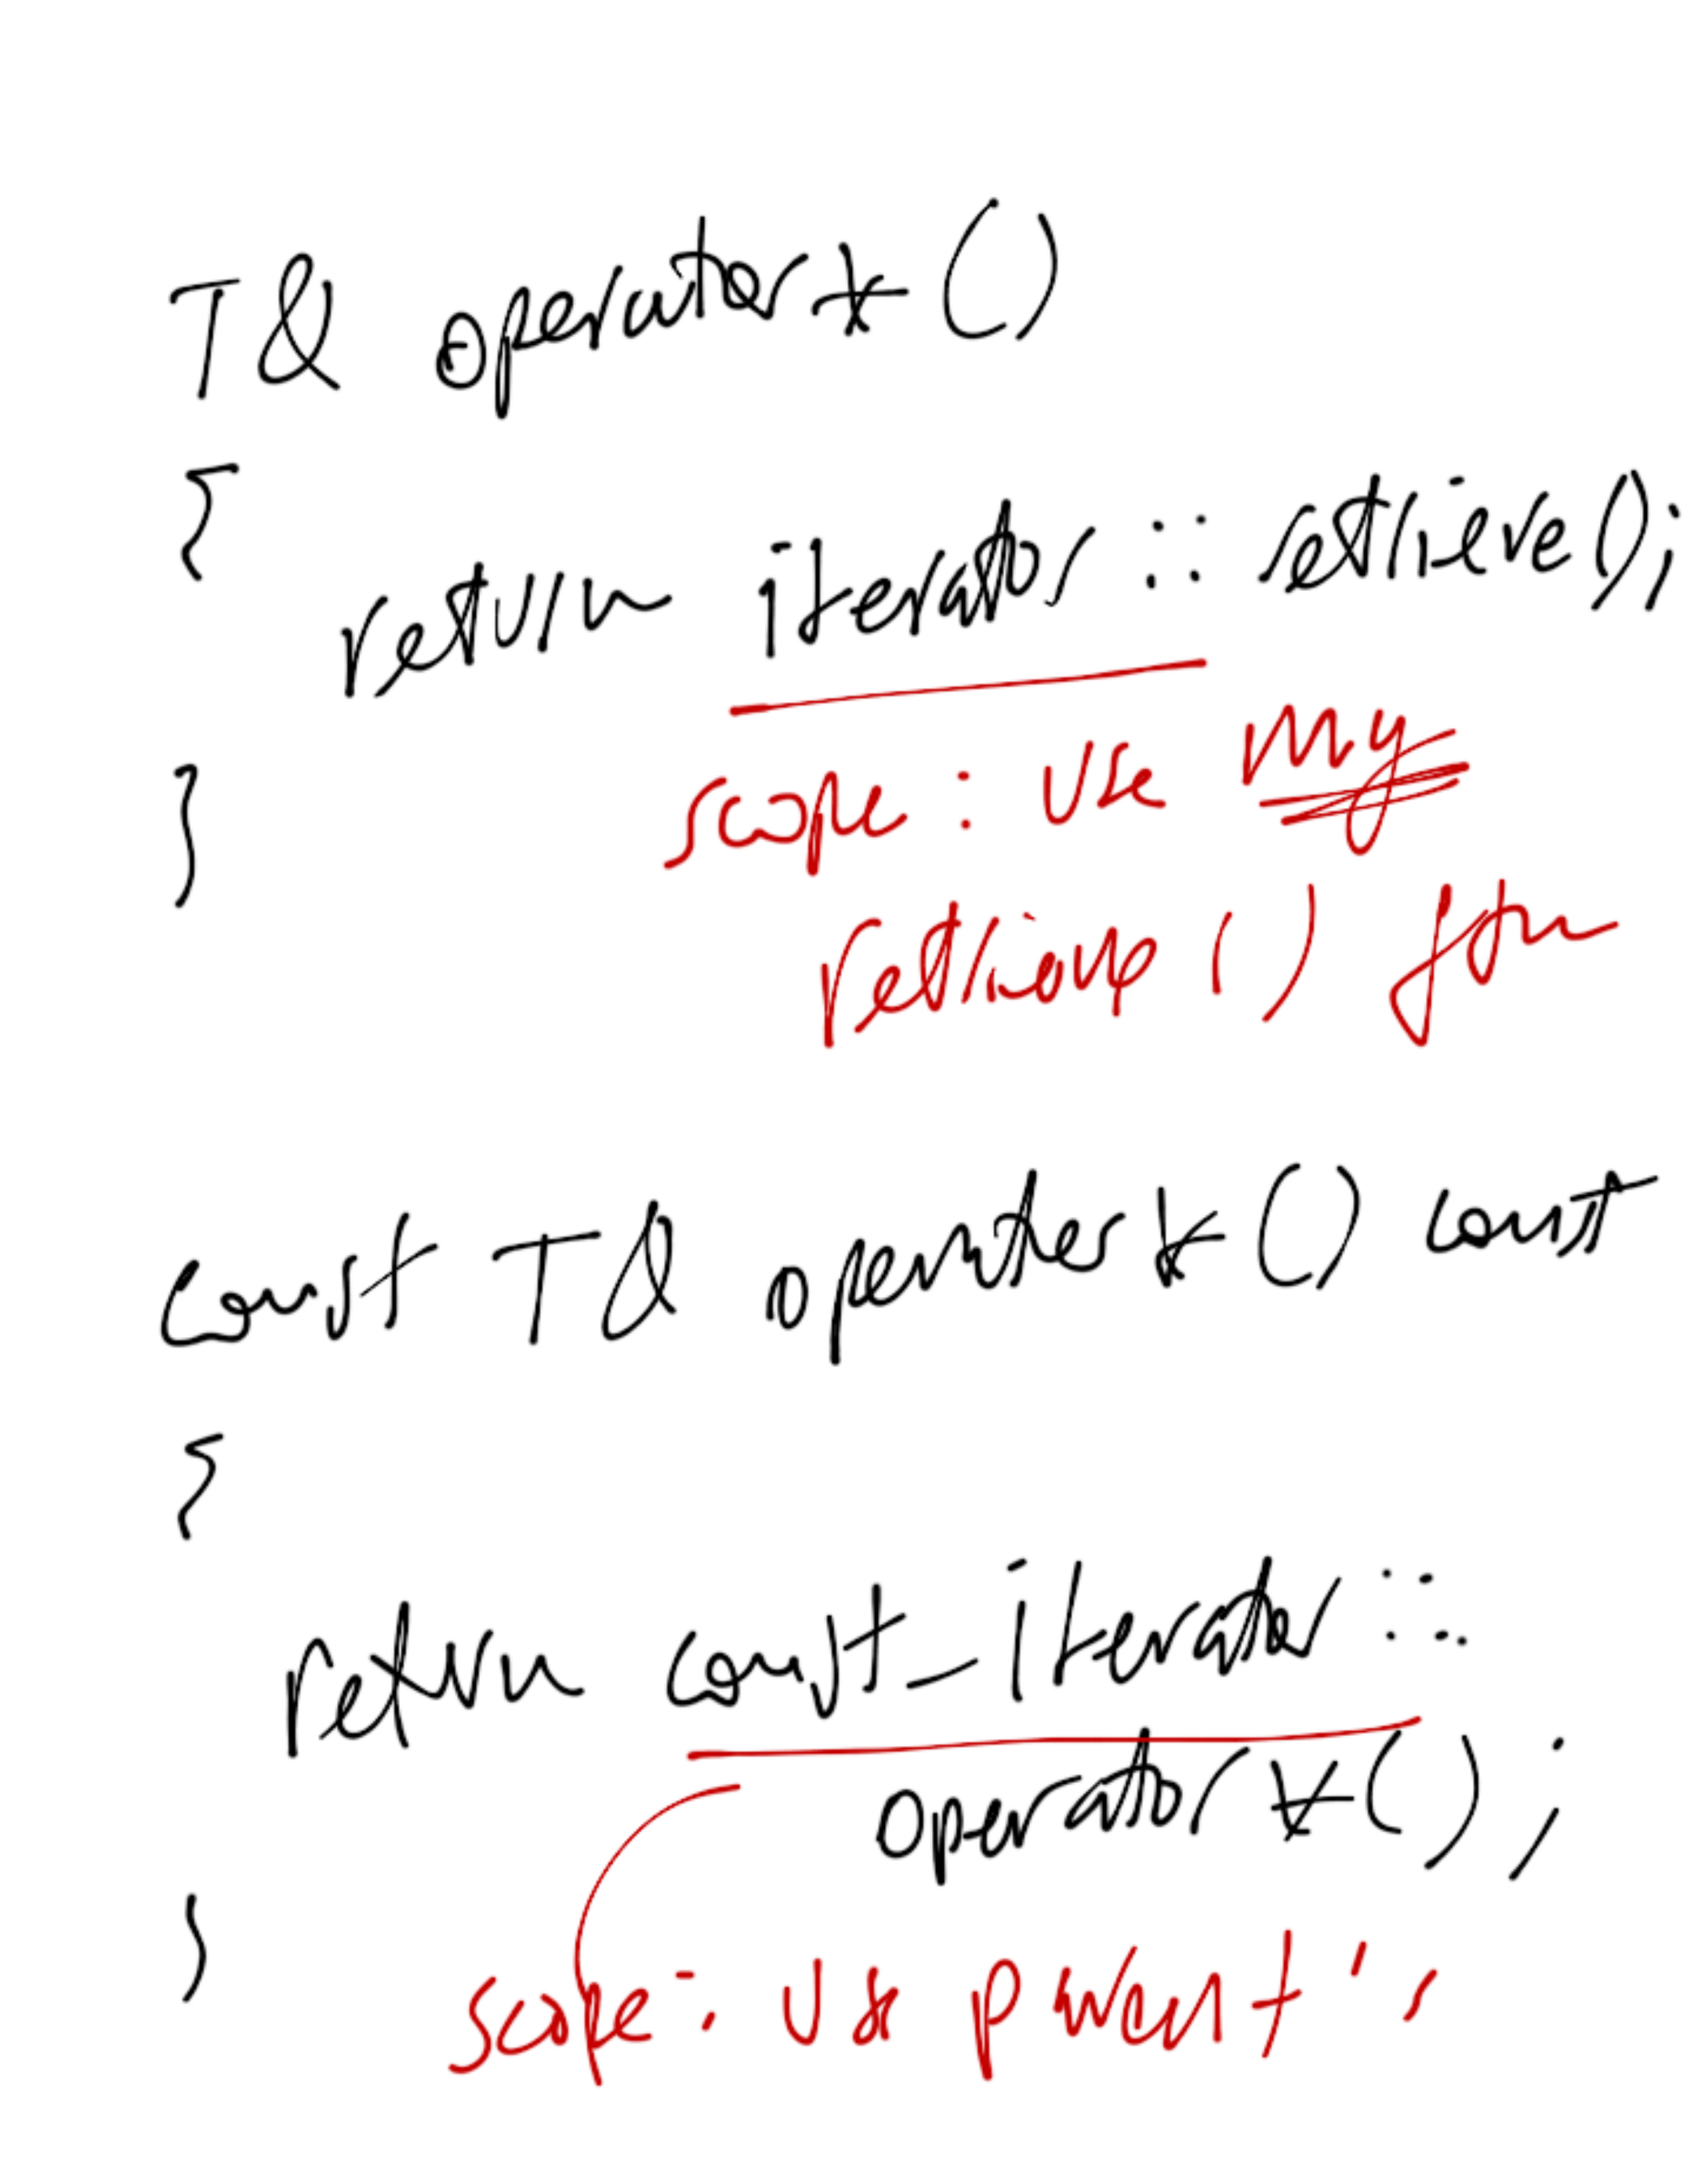 T& operator*()
{
return iterator::retrieve();
scope: use my
}
retrieve() fcn
const T& operator*() const
{
return const_iterator::
operator*();
}
scope: use parent's